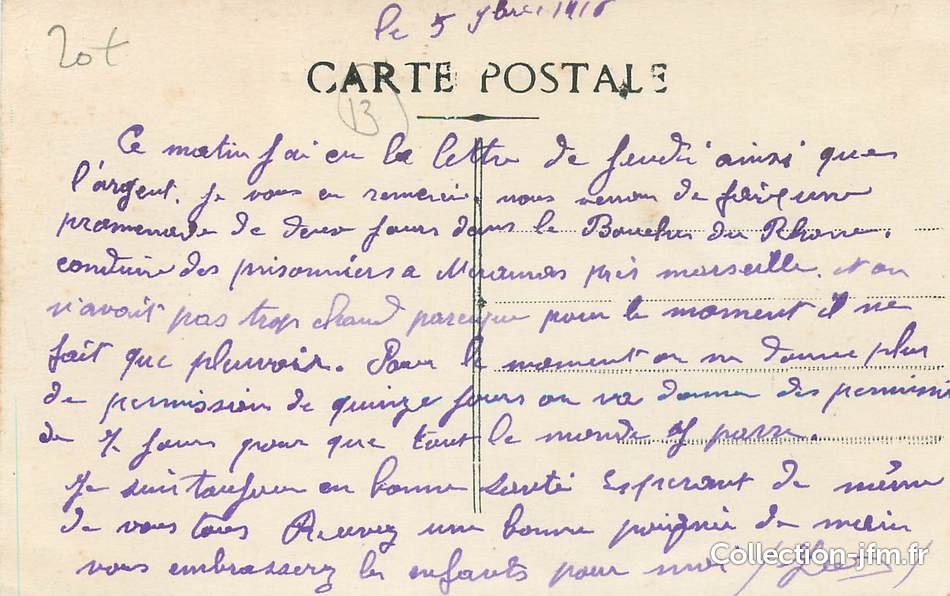 20t
le 5 9bre 1916
CARTE POSTALE
13
Ce matin j'ai eu la lettre de jeudi ainsi que
l'argent. je vous en remercie. nous venons de faire une
promenade de deux jours dans le Bouches du Rhone.
conduire des prisonniers a Miramas près marseille. et on
n'avait pas trop chaud parceque pour le moment il ne
fait que pleuvoir. Pour le moment on ne donne plus
de permission de quinze jours on va donner des permissi
de 7 jours pour que tout le monde y passe.
Je suis toujours en bonne santé Esperant de même
de vous tous Recevez une bonne poignée de main
vous embrasserez les enfants pour moi
Collection-jfm.fr